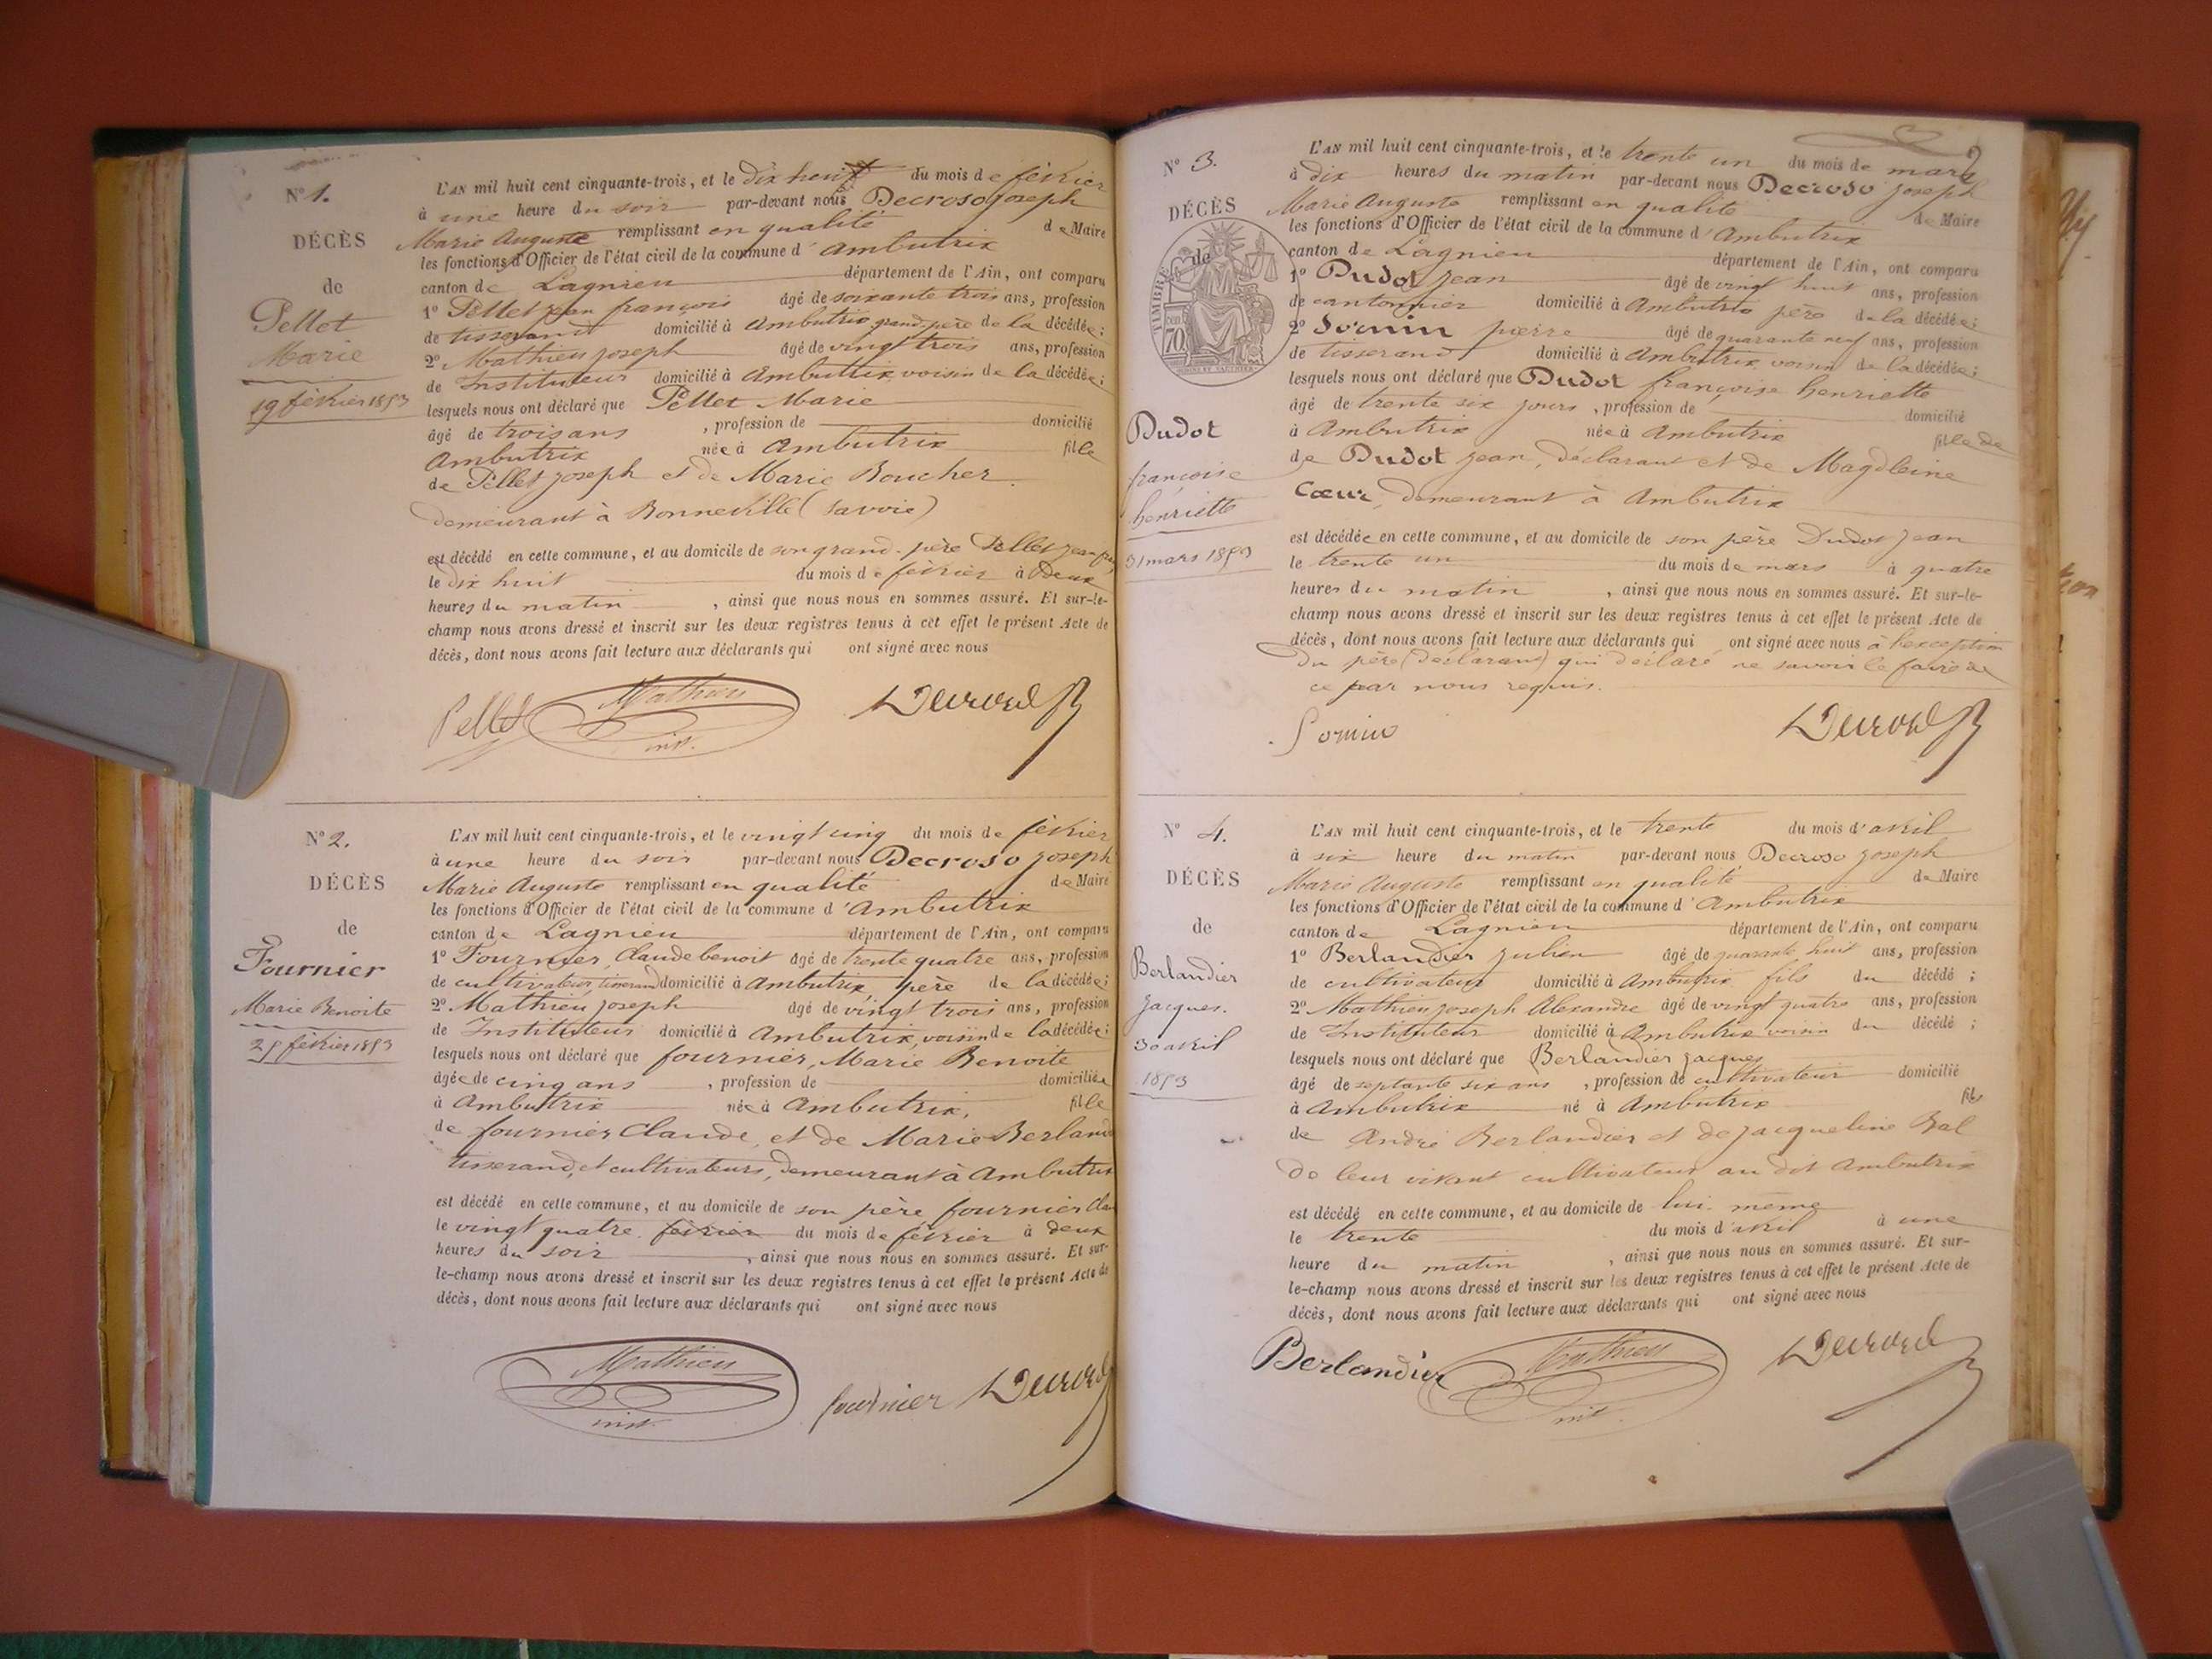 N° 1.
DÉCÈS
de
Pellet
Marie
19 février 1853
L'AN mil huit cent cinquante-trois, et le dix huit du mois de février
à une heure du soir par-devant nous Decroso joseph
Marie Auguste remplissant en qualité de Maire
les fonctions d'Officier de l'état civil de la commune d'Ambutrix
canton de Lagnieu département de l'Ain, ont comparu
1° Pellet jean françois âgé de soixante trois ans, profession
de tisserand domicilié à Ambutrix grand-père de la décédée;
2° Mathieu joseph âgé de vingt trois ans, profession
de Instituteur domicilié à Ambutrix, voisin de la décédée;
lesquels nous ont déclaré que Pellet Marie
âgé de trois ans , profession de domicilié
Ambutrix née à Ambutrix fille
de Pellet joseph et de Marie Boucher
demeurant à Bonneville (Savoie)
est décédé en cette commune, et au domicile de son grand-père Pellet jean
le dix huit du mois de février à deux
heures du matin , ainsi que nous nous en sommes assuré. Et sur-le-
champ nous avons dressé et inscrit sur les deux registres tenus à cet effet le présent Acte de
décès, dont nous avons fait lecture aux déclarants qui ont signé avec nous
Pellet Mathieu
inst.
N° 2.
DÉCÈS
de
Fournier
Marie Benoite
25 février 1853
L'AN mil huit cent cinquante-trois, et le vingt cinq du mois de février
à une heure du soir par-devant nous Decroso joseph
Marie Auguste remplissant en qualité de Maire
les fonctions d'Officier de l'état civil de la commune d'Ambutrix
canton de Lagnieu département de l'Ain, ont comparu
1° Fournier, Claude benoit âgé de trente quatre ans, profession
de cultivateur, tisserand domicilié à Ambutrix, père de la décédée;
2° Mathieu joseph âgé de vingt trois ans, profession
de Instituteur domicilié à Ambutrix, voisin de la décédée;
lesquels nous ont déclaré que fournier, Marie Benoite
âgée de cinq ans , profession de domiciliée
à Ambutrix née à Ambutrix, fille
de fournier Claude, et de Marie Berland
tisserand, et cultivateurs, demeurant à Ambutrix
est décédé en cette commune, et au domicile de son père fournier Cla
le vingt quatre février du mois de février à deux
heures du soir , ainsi que nous nous en sommes assuré. Et sur-
le-champ nous avons dressé et inscrit sur les deux registres tenus à cet effet le présent Acte de
décès, dont nous avons fait lecture aux déclarants qui ont signé avec nous
Mathieu
inst.
fournier
N° 3.
DÉCÈS
de
TIMBRE
70
Dudot
françoise
henriette
31 mars 1853
L'AN mil huit cent cinquante-trois, et le trente un du mois de mars
à dix heures du matin par-devant nous Decroso joseph
Marie Auguste remplissant en qualité de Maire
les fonctions d'Officier de l'état civil de la commune d'Ambutrix
canton de Lagnieu département de l'Ain, ont comparu
1° Dudot jean âgé de vingt huit ans, profession
de cantonnier domicilié à Ambutrix père de la décédée;
2° Sornin pierre âgé de quarante neuf ans, profession
de tisserand domicilié à Ambutrix, voisin de la décédée;
lesquels nous ont déclaré que Dudot françoise henriette
âgé de trente six jours , profession de domicilié
à Ambutrix née à Ambutrix fille de
de Dudot jean, déclarant et de Magdleine
Cœur, demeurant à Ambutrix
est décédée en cette commune, et au domicile de son père Dudot jean
le trente un du mois de mars à quatre
heures du matin , ainsi que nous nous en sommes assuré. Et sur-le-
champ nous avons dressé et inscrit sur les deux registres tenus à cet effet le présent Acte de
décès, dont nous avons fait lecture aux déclarants qui ont signé avec nous à l'exception
du père (déclarant) qui déclaré ne savoir le faire de
ce par nous requis.
Sornin
N° 4.
DÉCÈS
de
Berlandier
jacques.
30 avril
1853
L'AN mil huit cent cinquante-trois, et le trente du mois d'avril
à six heure du matin par-devant nous Decroso joseph
Marie Auguste remplissant en qualité de Maire
les fonctions d'Officier de l'état civil de la commune d'Ambutrix
canton de Lagnieu département de l'Ain, ont comparu
1° Berlandier julien âgé de quarante huit ans, profession
de cultivateur domicilié à Ambutrix fils du décédé;
2° Mathieu joseph Alexandre âgé de vingt quatre ans, profession
de Instituteur domicilié à Ambutrix voisin du décédé;
lesquels nous ont déclaré que Berlandier jacques
âgé de septante six ans , profession de cultivateur domicilié
à Ambutrix né à Ambutrix fils
de André Berlandier et de jacqueline Bal
de leur vivant cultivateur au dit Ambutrix
est décédé en cette commune, et au domicile de lui-même
le trente du mois d'avril à une
heure du matin , ainsi que nous nous en sommes assuré. Et sur-
le-champ nous avons dressé et inscrit sur les deux registres tenus à cet effet le présent Acte de
décès, dont nous avons fait lecture aux déclarants qui ont signé avec nous
Berlandier Mathieu
inst.